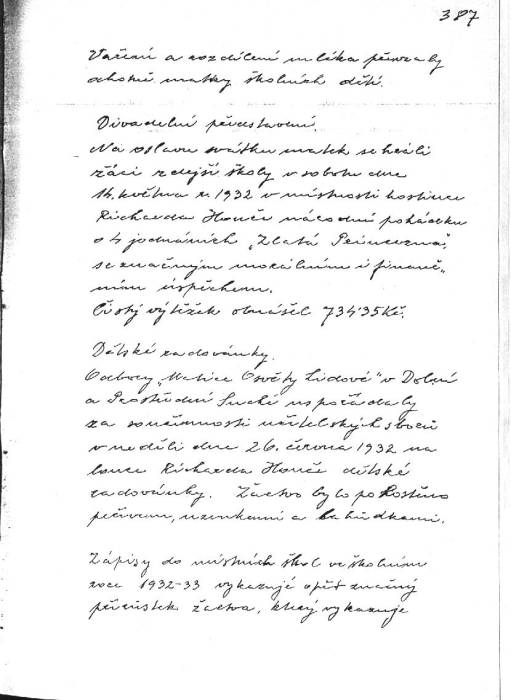 387
Vaření a rozdělení mléka převzaly
ochotné matky školních dětí.
Divadelní představení.
Na oslavu svátku matek sehráli
žáci zdejší školy v sobotu dne
14. května r. 1932 v místnosti hostince
Richarda Honče národní pohádku
o 4 jednáních „Zlatá Princezna",
se značným morálním i finanč-
ním úspěchem.
Čistý výtěžek obnášel 734'35 Kč.
Dětské radovánky.
Odbory „Matice Osvěty Lidové" v Dolní
a Prostřední Suché uspořádaly
za součinnosti učitelských sborů
v neděli dne 26. června 1932 na
louce Richarda Honče dětské
radovánky. Žactvo bylo pohostěno
pečivem, uzenkami a lahůdkami.
Zápisy do místních škol ve školním
roce 1932-33 vykazují opět značný
přírůstek žactva, který vykazuje